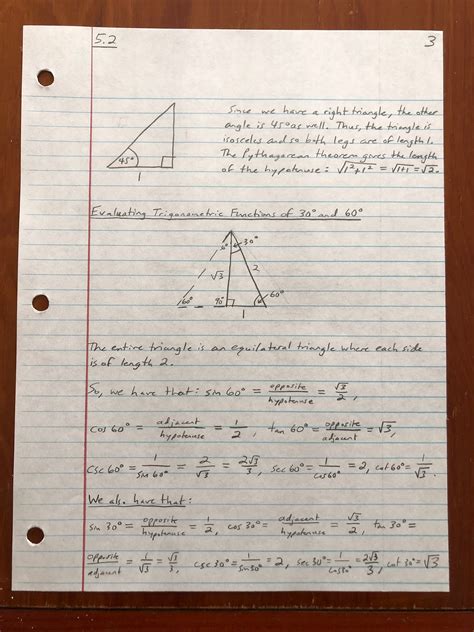 5.2
3
Since we have a right triangle, the other
angle is 45° as well. Thus, the triangle is
isosceles and so both legs are of length 1.
The Pythagorean theorem gives the length
of the hypotenuse: √(1²+1²) = √(1+1) = √2.
45°
1
Evaluating Trigonometric Functions of 30° and 60°
30°
√3
2
60°
90°
60°
1
The entire triangle is an equilateral triangle where each side
is of length 2.
So, we have that: sin 60° = opposite/hypotenuse = √3/2,
cos 60° = adjacent/hypotenuse = 1/2, tan 60° = opposite/adjacent = √3,
csc 60° = 1/sin 60° = 2/√3 = 2√3/3, sec 60° = 1/cos 60° = 2, cot 60° = 1/√3.
We also have that:
sin 30° = opposite/hypotenuse = 1/2, cos 30° = adjacent/hypotenuse = √3/2, tan 30° =
opposite/adjacent = 1/√3 = √3/3, csc 30° = 1/sin 30° = 2, sec 30° = 1/cos 30° = 2√3/3, cot 30° = √3